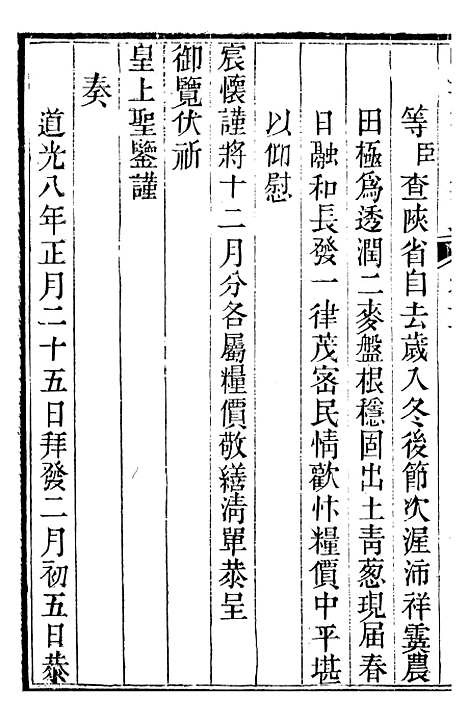 等臣查陝省自去歲入冬後節次渥沛祥霙農
田極爲透潤二麥盤根穩固出土靑葱現届春
日融和長發一律茂密民情歡忭糧價中平堪
以仰慰
宸懷謹將十二月分各屬糧價敬繕淸單恭呈
御覽伏祈
皇上聖鑒謹
奏
道光八年正月二十五日拜發二月初五日恭